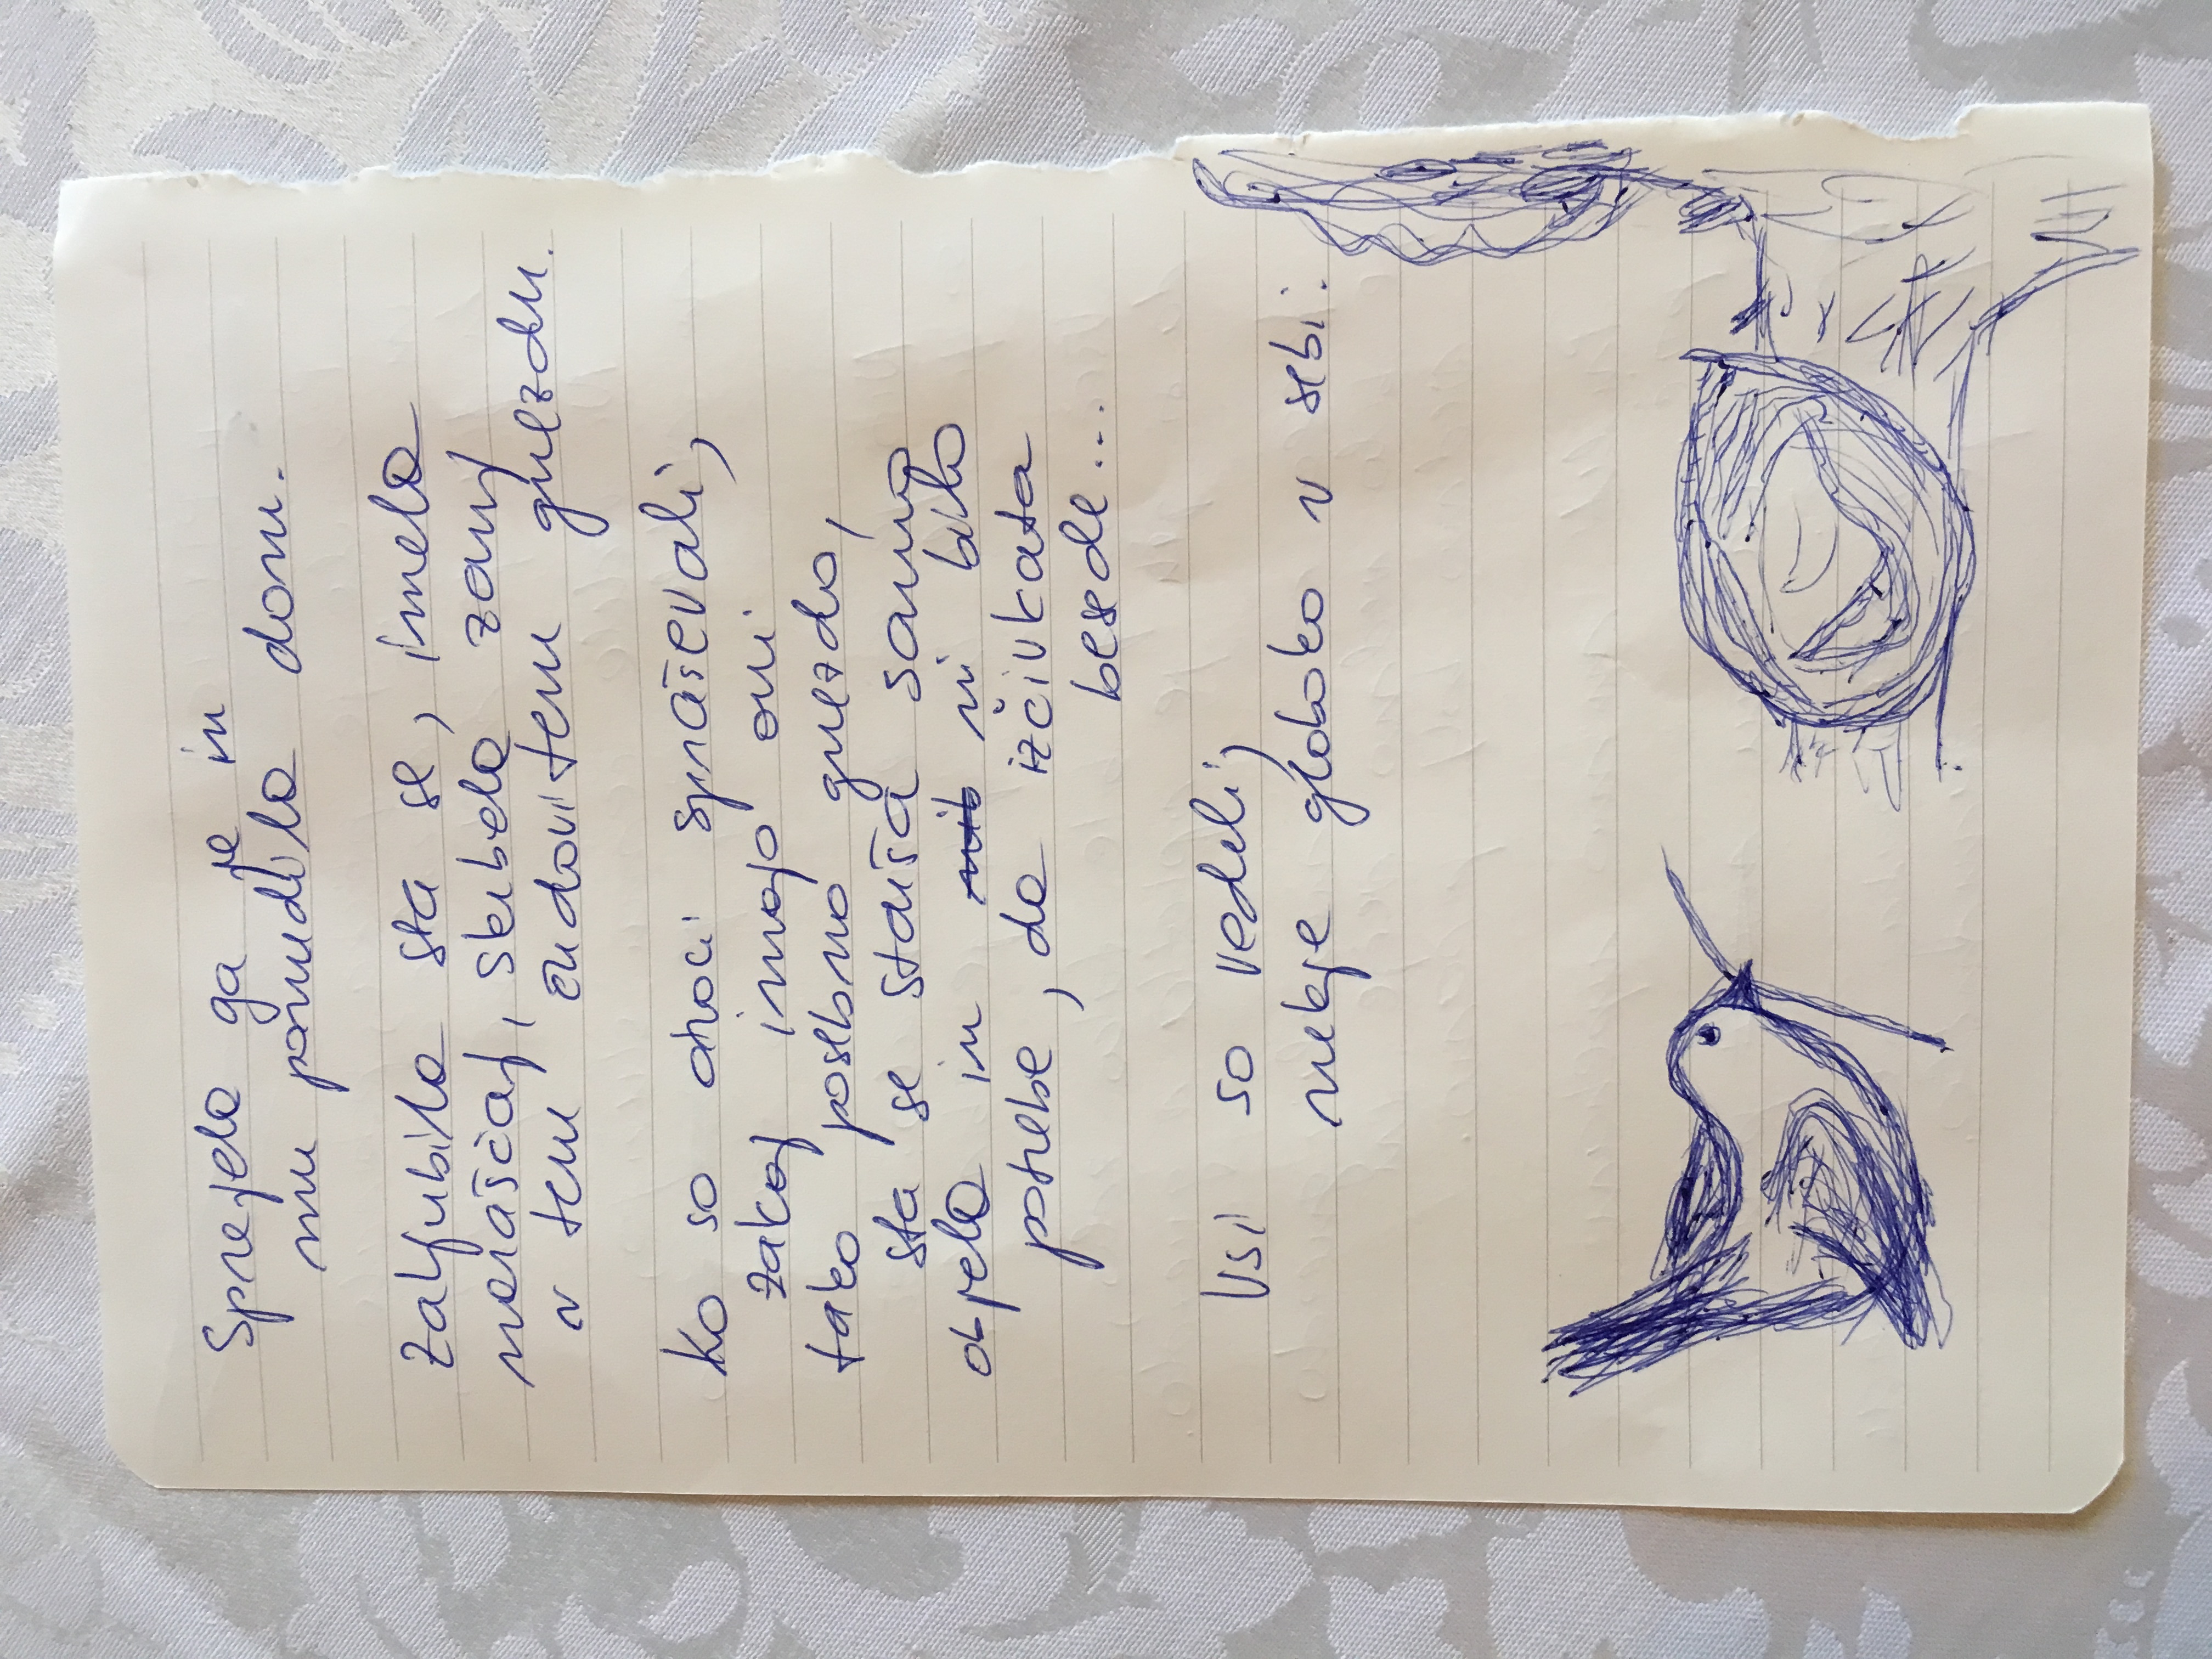 Sprejela ga je in
mu ponudila dom.
Zaljubila sta se, imela
naraščaj, skrbela zanj
v tem čudovitem gnezdu.
Ko so otroci spraševali,
zakaj imajo oni
tako posebno gnezdo,
sta se starša samo
objela in ni bilo
potrebe, da izčivkata
besede...
Vsi so vedeli,
nekje globoko v sebi.